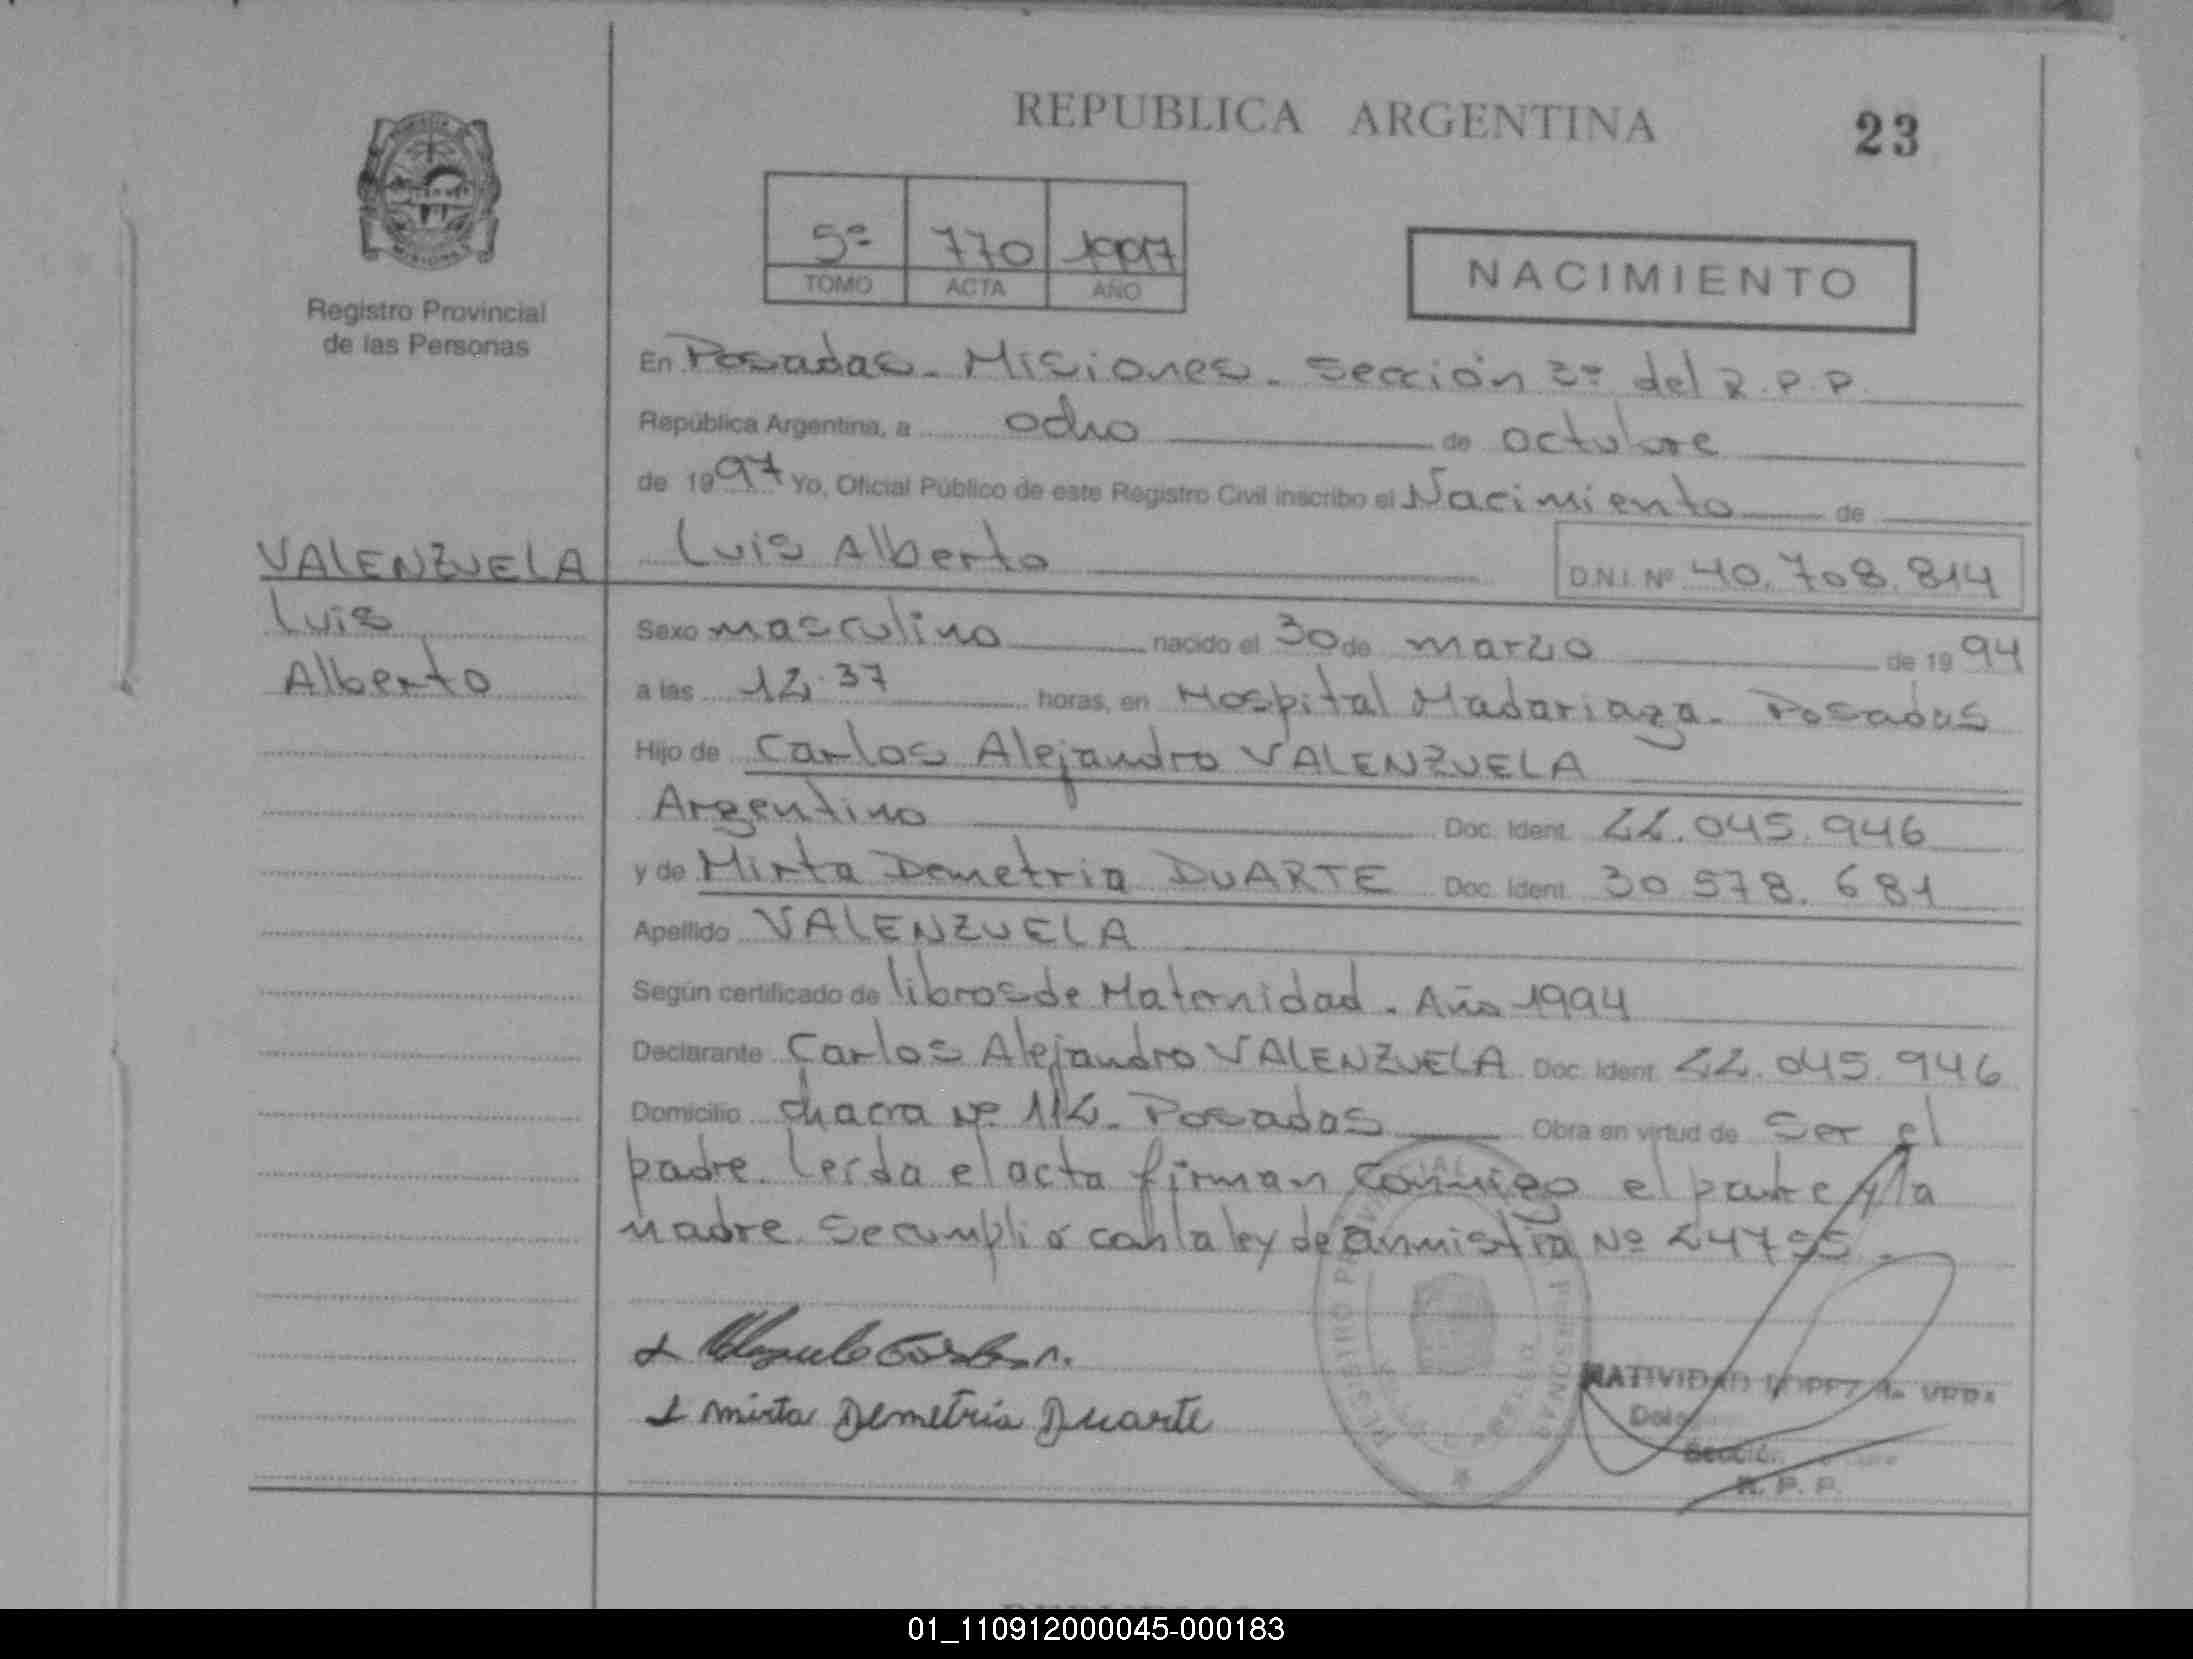 REPUBLICA ARGENTINA
23
5º 770 1997
TOMO ACTA AÑO
NACIMIENTO
Registro Provincial
de las Personas
En Posadas - Misiones - Sección 3º del R.P.P.
República Argentina, a ocho de octubre
de 1997 Yo, Oficial Público de este Registro Civil inscribo el Nacimiento de
VALENZUELA
Luis
Alberto
Luis Alberto D.N.I. Nº 40.708.814
Sexo masculino nacido el 30 de marzo de 1994
a las 12.37 horas, en Hospital Madariaga - Posadas
Hijo de Carlos Alejandro VALENZUELA
Argentino Doc. Ident. 22.045.946
y de Mirta Demetria DUARTE Doc. Ident. 30 578.681
Apellido VALENZUELA
Según certificado de libros de Maternidad. Año 1994
Declarante Carlos Alejandro VALENZUELA Doc. Ident. 22.045.946
Domicilio chacra Nº 112 - Posadas Obra en virtud de ser el
padre. Leída el acta firman conmigo el padre y la
madre. Se cumplió con la ley de anmistía Nº 24755.
Mirta Demetria Duarte
REGISTRO PROVINCIAL PERSONAS
NATIVIDAD LOPEZ de
Sección
R. P. P.
01_110912000045-000183